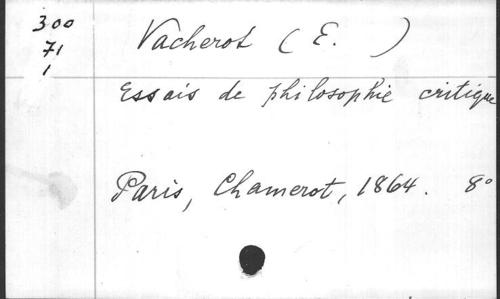 300
71
1
Vacherot (E. )
Essais de philosophie critique
Paris, Chamerot, 1864. 8°